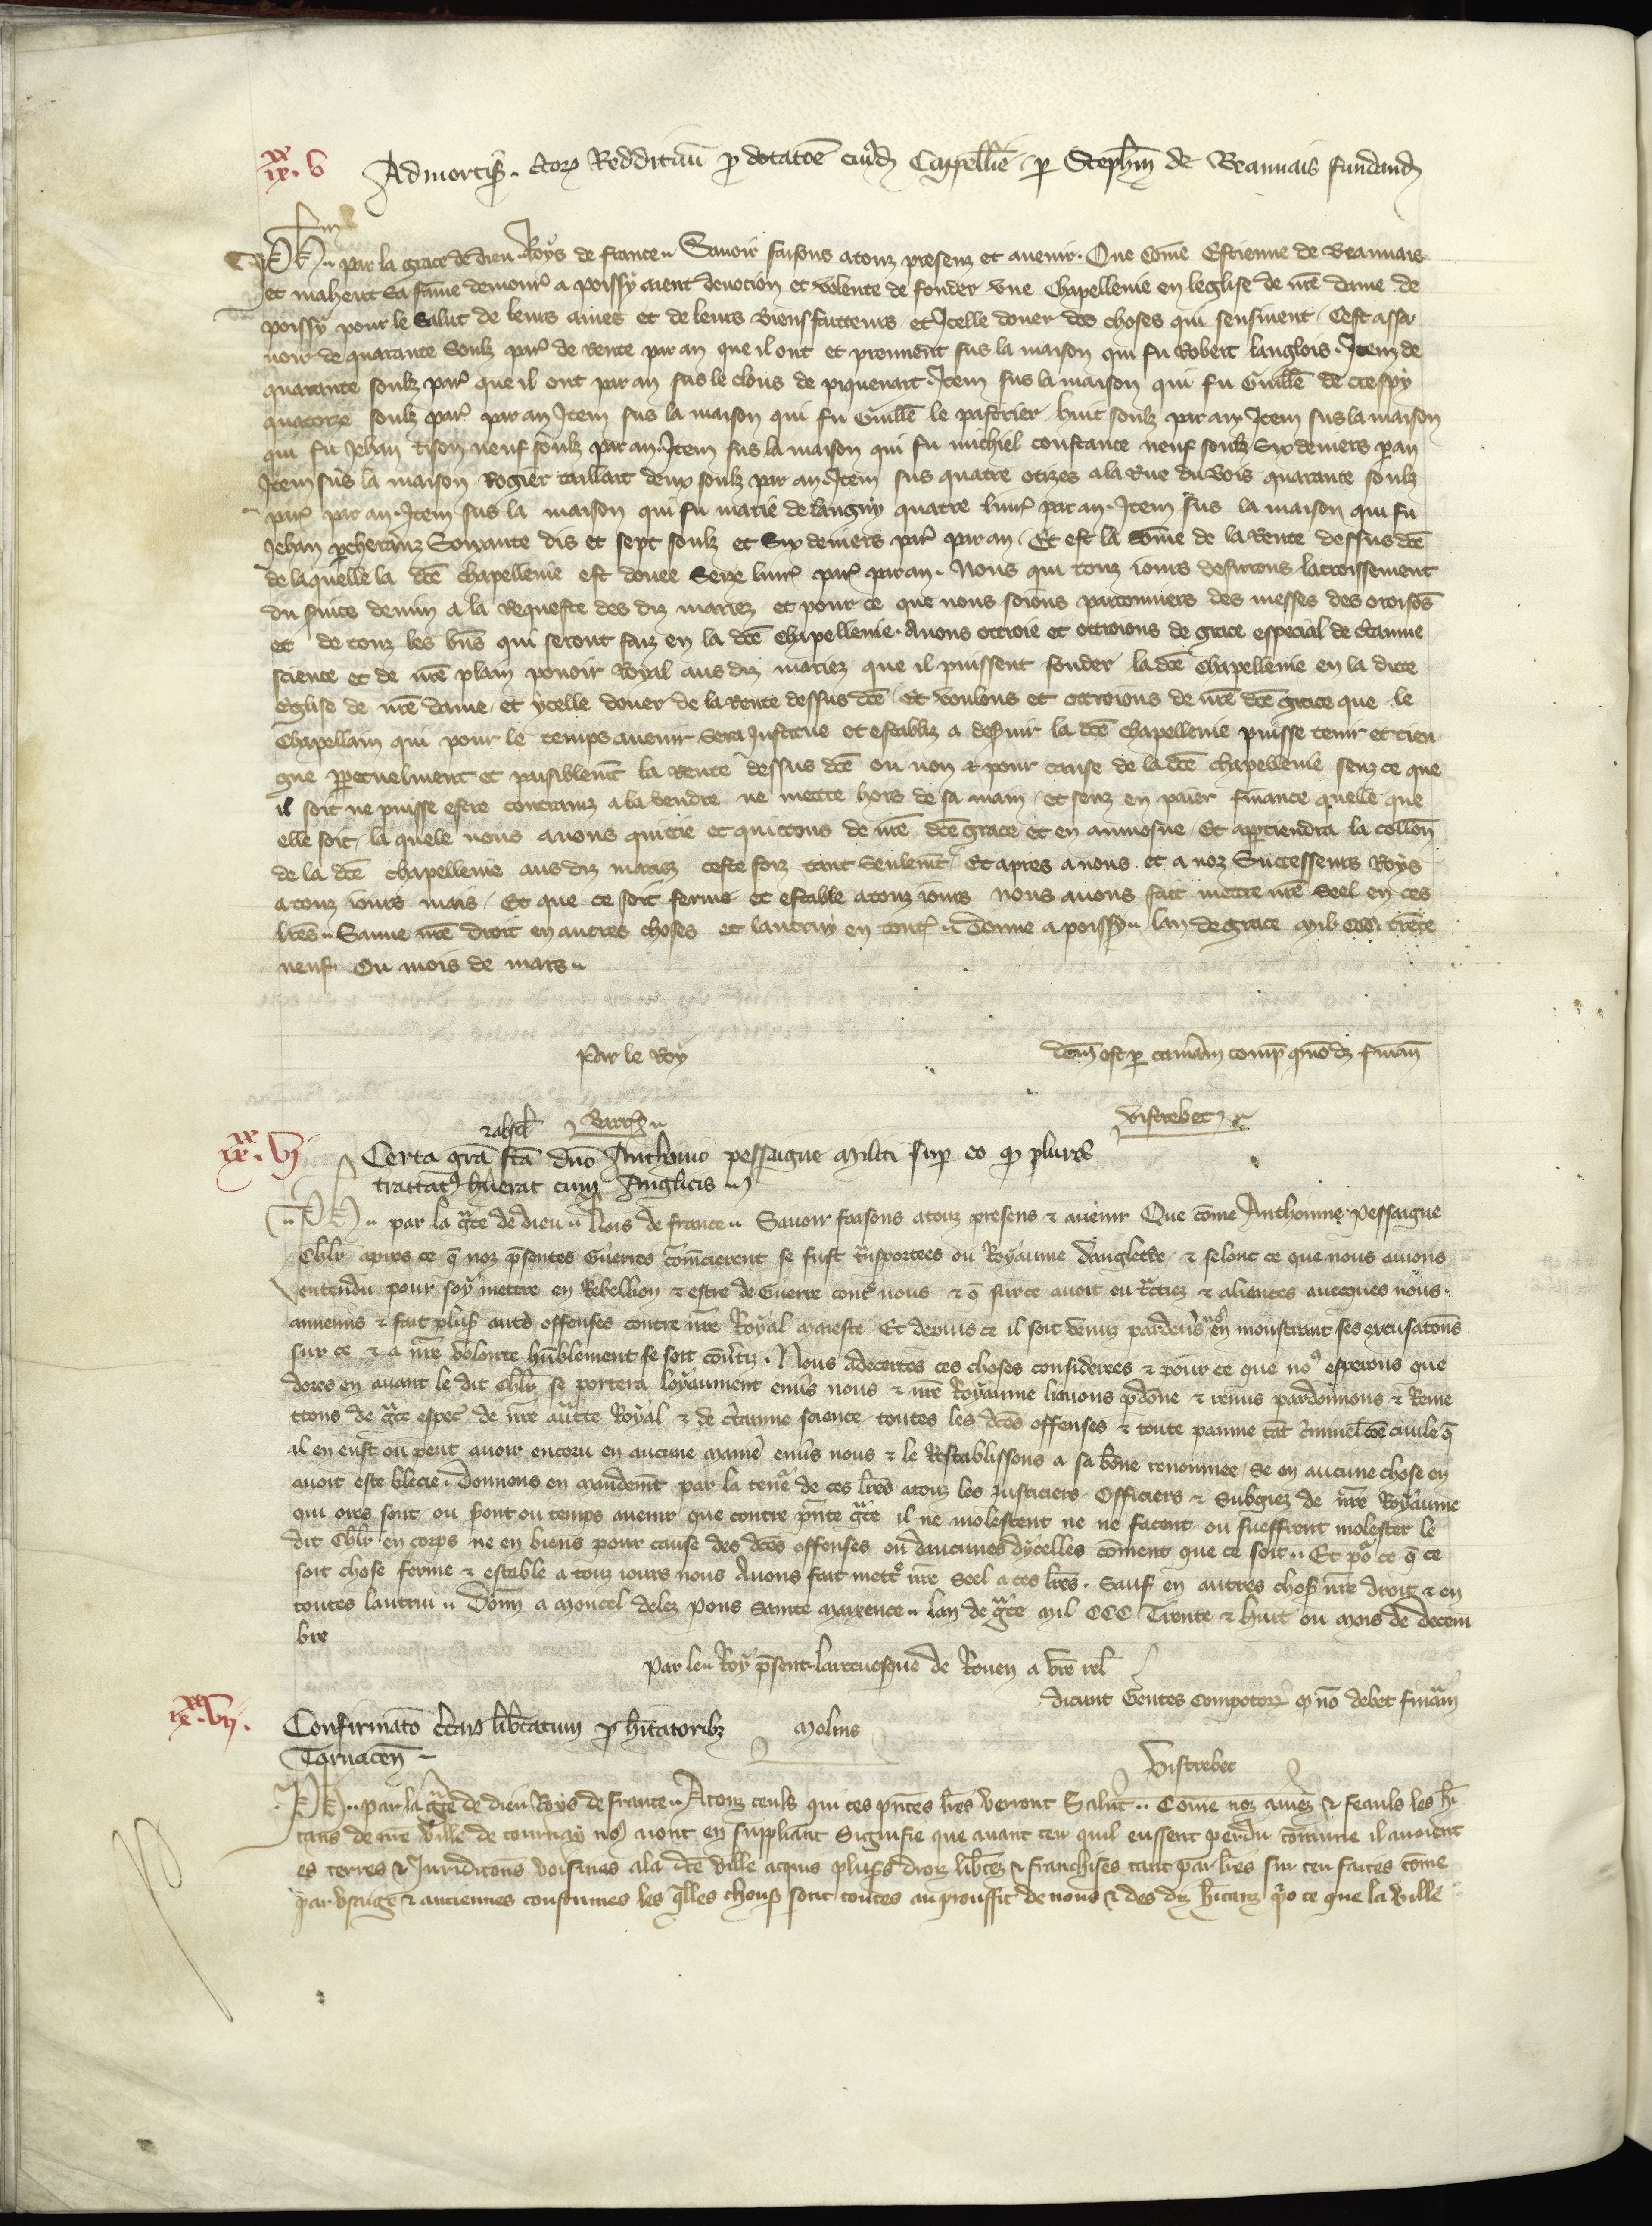 xx
ix. v Admortis. certorum Reddituum pro dotatoe cuiusd Cappellie per Stephm de Beauuais fundand
Ph par la grace de dieu Roys de france Sauoir faisons a touz presenz et auenir. Que come Estienne de Beauuais
et maheut sa fame demour a poissy aient deuocion et volente de fonder vne Chapellenie en leglise de nre dame de
poissy pour le salut de leurs ames et de leurs biensfaiteurs et Icelle douer des choses qui sensiuent Cest assa
uoir de quarante soulz par de rente par an que il ont et prennent sus la maison qui fu Robert langlois. Item de
quarante soulz par que il ont par an sus le clous de piquenart. Item sus la maison qui fu Guille de crespy
quatorze soulz par par an Item sus la maison qui fu Guille le pasticier huit soulz par an Item sus la maison
qui fu Jehan Tison neuf soulz par an. Item sus la maison qui fu michiel constance neuf soulz six deniers par an
Item sus la maison Rogier taillart deux soulz par an. Item sus quatre a la rue du bois quarante soulz
par par an. Item sus la maison qui fu marie de langny quatre liur par an. Item sus la maison qui fu
Jehan Soixante dis et sept soulz et six deniers par par an. Et est la some de la rente dessus dce
de laquelle la dce chapellenie est douee seze liur par par an. Nous qui touz iours desirons lacroissement
du seruice deuin a la requeste des diz mariez et pour ce que nous soions parconniers des messes des oroisos
et de touz les bns qui seront faiz en la dce chapellenie. Auons ottroie et ottroions de grace especial de ctaine
science et de nre plain pouoir royal aus diz mariez que il puissent fonder la dce chapellenie en la dicte
eglise de nre dame et ycelle douer de la rente dessus dce. Et voulons et ottroions de nre dce grace que le
Chapellain qui pour le temps auenir sera Institue et establiz a desseruir la dce chapellenie puisse tenir et tien
gne perpetuelment et paisiblemt la rente dessus dce ou non et pour cause de la dce chapellenie senz ce que
il soit ne puisse estre contrainz a la vendre ne mettre hors de sa main et senz en paier finance quelle que
elle soit. la quele nous auons quitie et quittons de nre dce grace et en aumosne. Et apartiendra la collon
de la dce chapellenie aus diz mariez ceste foiz tant seulemt. Et apres a nous et a noz Successeurs Roys
a touz iours mais. Et que ce soit ferme et estable a touz iours nous auons fait mettre nre seel en ces
lres. Sauue nre droit en autres choses et lautruy en tout. Donne a poissy lan de grace mil CCC. trete
neuf. Ou mois de mars
Par le Roy
est per camam comp finan
Vistrebec
xx
ix. vj
Certa gra fca dno Anthonio pessagne militi sup eo q plures
trattat huerat cum Anglicis
Ph par la gce de dieu Rois de france Sauoir faisons a touz presens et auenir Que come Anthoinne pessaigne
Chlr apres ce q noz psentes Guerres comencierent se fust trsportees ou Royaume dangleterre et selonc ce que nous auons
entendu pour soy mettre en Rebellion et estre de Guerre cont nous et q sur ce auoit eu et aliences auecques nous.
annemis et fait plus autres offenses contre nre Royal maieste Et depuis ce il soit venuz pardeuers en monstrant ses excusatons
sur ce et a nre volonte humblement se soit conuertiz. Nous adecertes ces choses considerees et pour ce que no esperons que
dores en auant le dit Chlr se portera loyaument enuers nous et nre Royaume li auons pdone et remis pardonnons et Reme
ttons de gce espec de nre autte Royal et de ctainne science toutes les dces offenses et toute painne tat criminel coe ciuile q
il en eust ou peut auoir encoru en aucune manie enuers nous et le Restablissons a sa bone renonmee. Se en aucune chose en
auoit este blecie. Donnons en mandemt par la teneur de ces lres a touz les justiciers Officiers et Subgiez de nre Royaume
qui ores sont ou seront ou temps auenir que contre pnte gce il ne molestent ne ne facent ou sueffrent molester le
dit Chlr en corps ne en biens pour cause des dces offenses ou daucunes dycelles coment que ce soit. Et po ce q ce
soit chose ferme et estable a touz iours nous Auons fait mettre nre seel a ces lres. Sauf en autres chos nre droit et en
toutes lautrui. Donn a Moncel delez Pons Sainte Maxence lan de gce Mil CCC Trente et huit ou mois de decem
bre
Par le Roy psent larceuesque de Rouen a vre rel
dicunt Gentes compotor q no debet finam
xx
ix. vij.
Confirmato certar libtatum pro hitatoribz Molins
Tornacen
Vistrebec
Ph par la gce de dieu Roys de france. A touz ceuls qui ces pntes lres verront Salut. Come noz amez et feauls les hi
tans de nre Ville de tournay no aient en suppliant Signifie que auant ceu quil eussent perdu comune il auoient
es terres et Juridicions voisines a la dce ville acquis plus droiz libtez et franchises tant par lres sur ceu faites come
par vsaige et anciennes coustumes les qlles chous sont toutes au prouffit de nous et des diz hitanz po ce que la ville